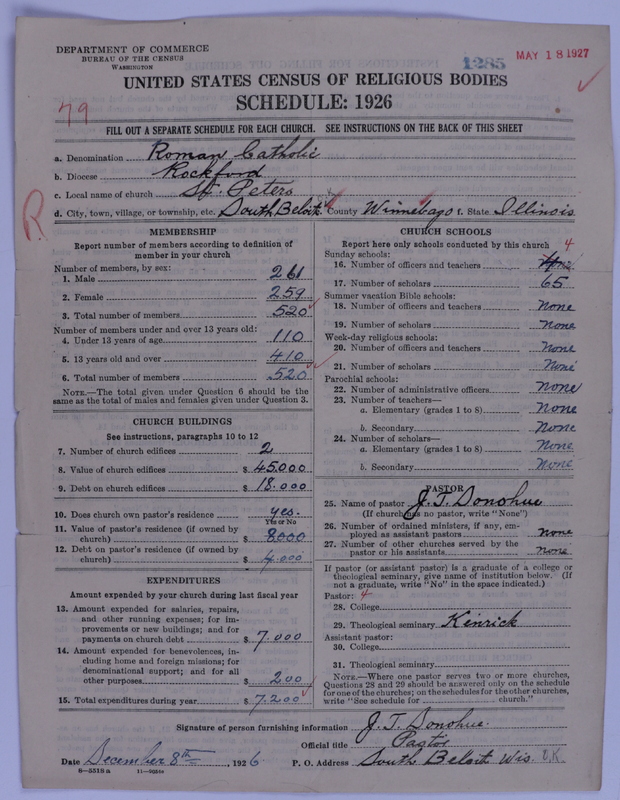 DEPARTMENT OF COMMERCE
BUREAU OF THE CENSUS
WASHINGTON
1285
MAY 18 1927
UNITED STATES CENSUS OF RELIGIOUS BODIES
SCHEDULE: 1926
79
FILL OUT A SEPARATE SCHEDULE FOR EACH CHURCH. SEE INSTRUCTIONS ON THE BACK OF THIS SHEET
a. Denomination Roman Catholic
b. Diocese Rockford
c. Local name of church St. Peters
d. City, town, village, or township, etc. South Beloit County Winnebago f. State Illinois
R
MEMBERSHIP
Report number of members according to definition of
member in your church
Number of members, by sex:
1. Male 261
2. Female 259
3. Total number of members 520
Number of members under and over 13 years old:
4. Under 13 years of age 110
5. 13 years old and over 410
6. Total number of members 520
NOTE.—The total given under Question 6 should be
same as the total of males and females given under Question 3.
CHURCH BUILDINGS
See instructions, paragraphs 10 to 12
7. Number of church edifices 2
8. Value of church edifices $ 45.000
9. Debt on church edifices $ 18.000
10. Does church own pastor's residence yes.
Yes or No
11. Value of pastor's residence (if owned by
church) $ 8000
12. Debt on pastor's residence (if owned by
church) $ 4.000
EXPENDITURES
Amount expended by your church during last fiscal year
13. Amount expended for salaries, repairs,
and other running expenses; for im-
provements or new buildings; and for
payments on church debt $ 7.000
14. Amount expended for benevolences, in-
cluding home and foreign missions; for
denominational support; and for all
other purposes $ 200
15. Total expenditures during year $ 7.200
CHURCH SCHOOLS
Report here only schools conducted by this church
Sunday schools:
16. Number of officers and teachers 4
17. Number of scholars 65
Summer vacation Bible schools:
18. Number of officers and teachers None
19. Number of scholars None
Week-day religious schools:
20. Number of officers and teachers None
21. Number of scholars None
Parochial schools:
22. Number of administrative officers None
23. Number of teachers—
a. Elementary (grades 1 to 8) None
b. Secondary None
24. Number of scholars—
a. Elementary (grades 1 to 8) None
b. Secondary None
PASTOR
25. Name of pastor J. T. Donohue
(If church has no pastor, write "None")
26. Number of ordained ministers, if any, em-
ployed as assistant pastors none
27. Number of other churches served by the
pastor or his assistants none
If pastor (or assistant pastor) is a graduate of a college or
theological seminary, give name of institution below. (If
not a graduate, write "No" in the space indicated.)
Pastor: 4
28. College
29. Theological seminary Kenrick
Assistant pastor:
30. College
31. Theological seminary
NOTE.—Where one pastor serves two or more churches,
Questions 28 and 29 should be answered only on the schedule
for one of the churches; on the schedules for the other churches,
write "See schedule for church."
Signature of person furnishing information J. T. Donohue.
Official title Pastor
Date December 8th, 1926. P. O. Address South Beloit Wis. O.K.
8—5518 a